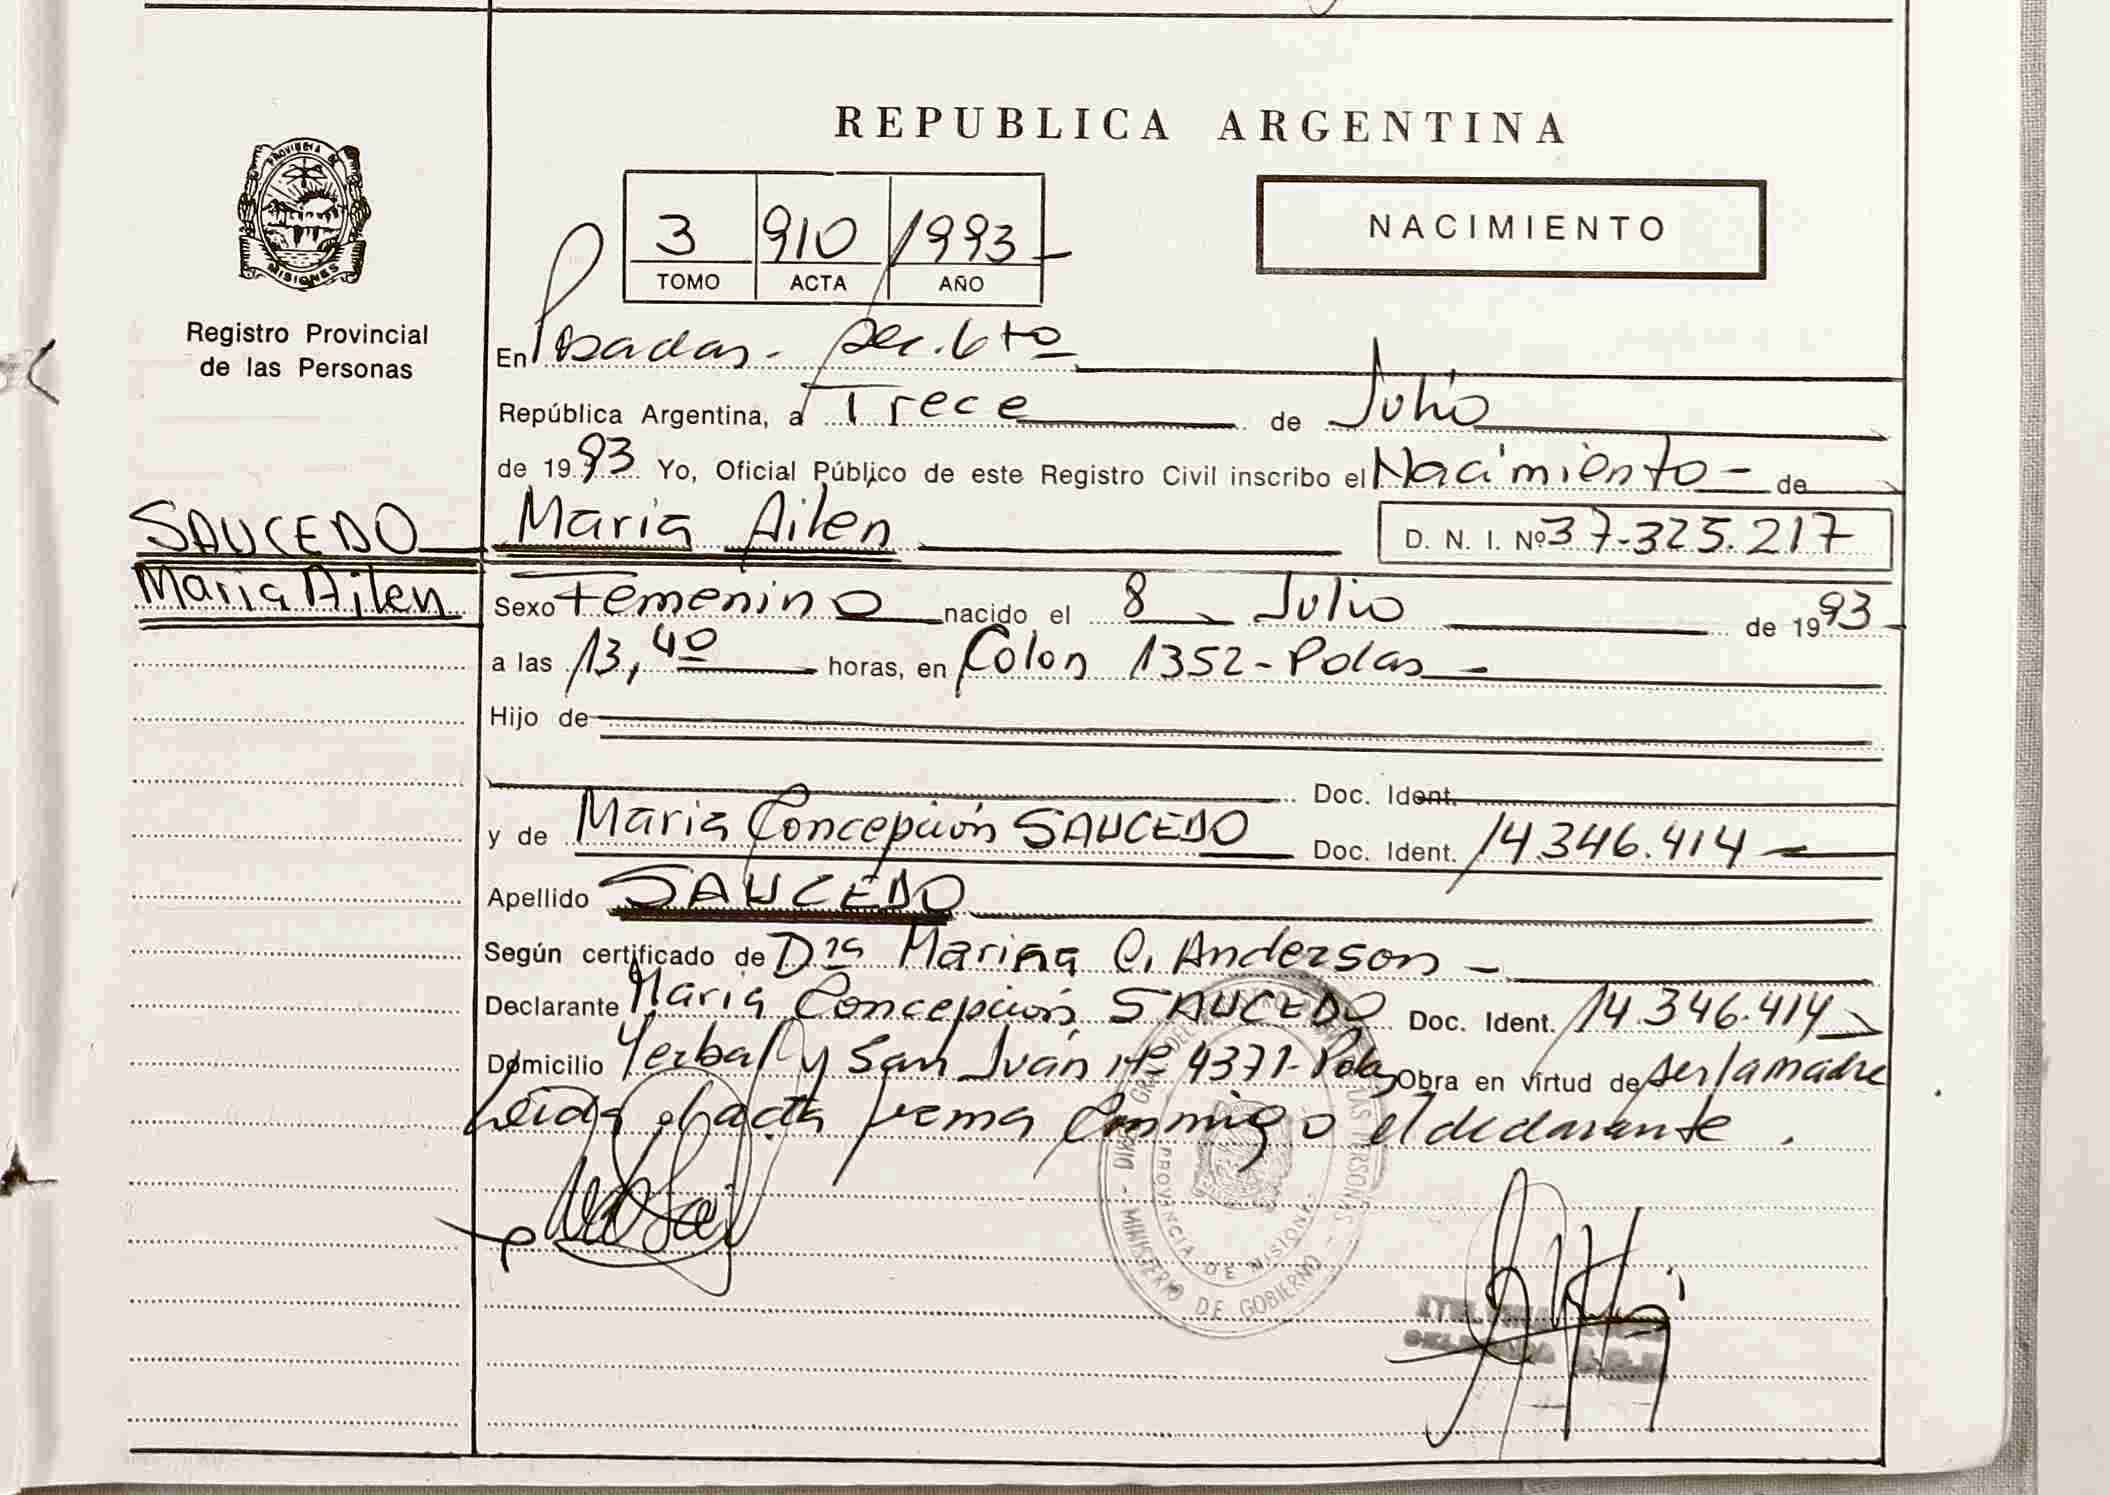 REPUBLICA ARGENTINA
PROVINCIA DE
MISIONES
Registro Provincial
de las Personas
3 910 1993
TOMO ACTA AÑO
NACIMIENTO
En Posadas - Sec. 6to
República Argentina, a Trece de Julio
de 1993 Yo, Oficial Público de este Registro Civil inscribo el Nacimiento - de
SAUCEDO María Ailen D. N. I. Nº 37.325.217
María Ailen Sexo Femenino nacido el 8 Julio de 1993
a las 13,40 horas, en Colon 1352 - Pdas -
Hijo de
Doc. Ident.
y de María Concepción SAUCEDO Doc. Ident. 14.346.414
Apellido SAUCEDO
Según certificado de Dra Marina C. Anderson -
Declarante María Concepción SAUCEDO Doc. Ident. 14.346.414
Domicilio Yerbal y San Juán Nº 4371 - Pdas Obra en virtud de ser la madre
Leida el acta firma conmigo el declarante.
PROVINCIA DE MISIONES
MINISTERIO DE GOBIERNO